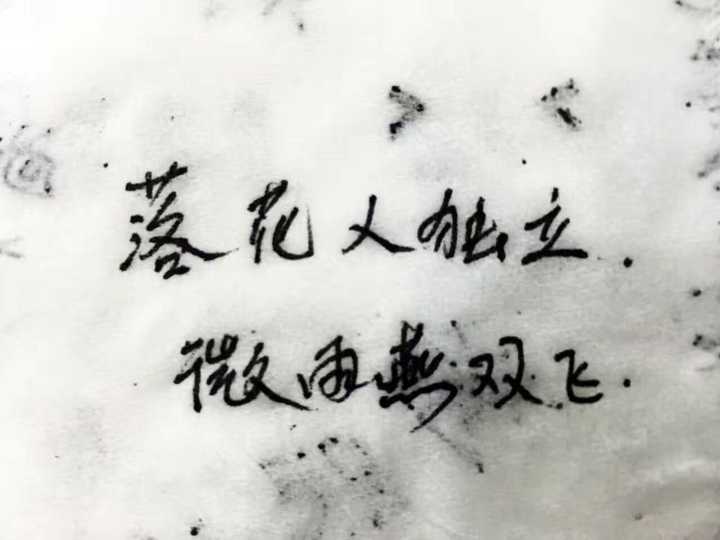 落花人独立.
微雨燕双飞.